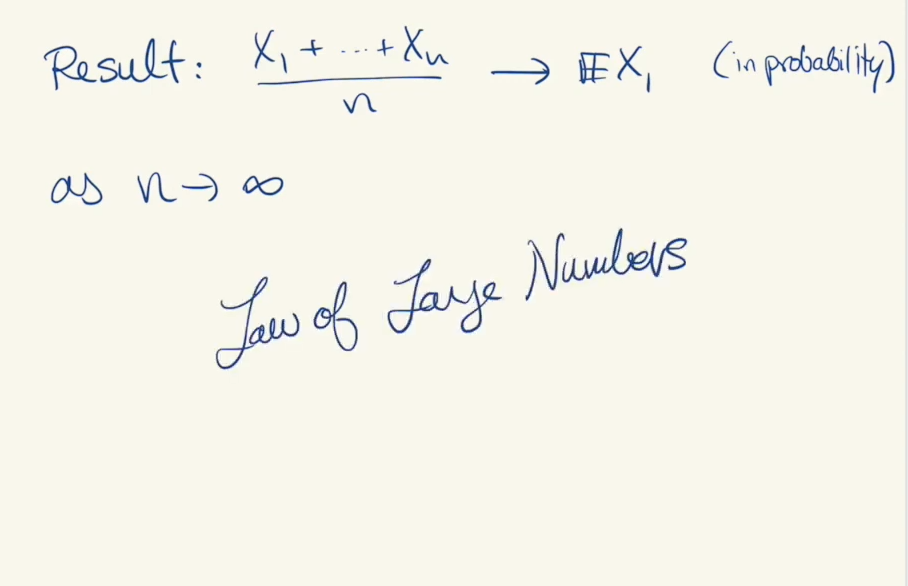 Result: X₁ + ... + Xₙ / n → 𝔼X₁ (in probability)
as n → ∞
Law of Large Numbers